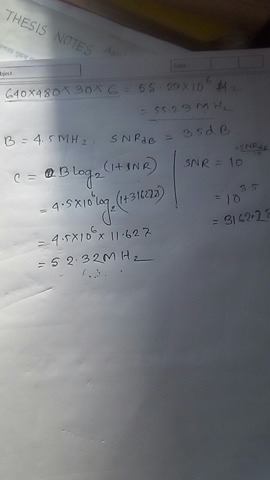 THESIS NOTES
bject
Date
640×480×30×6 = 55.29×10⁶ Hz
= 55.29 MHz
B = 4.5MHz. SNRdB = 35dB
C = B log₂(1+SNR)
= 4.5×10⁶ log₂(1+3162.27)
= 4.5×10⁶ × 11.627
= 52.32 MHz
SNR = 10
= 10^3.5
= 3162.27